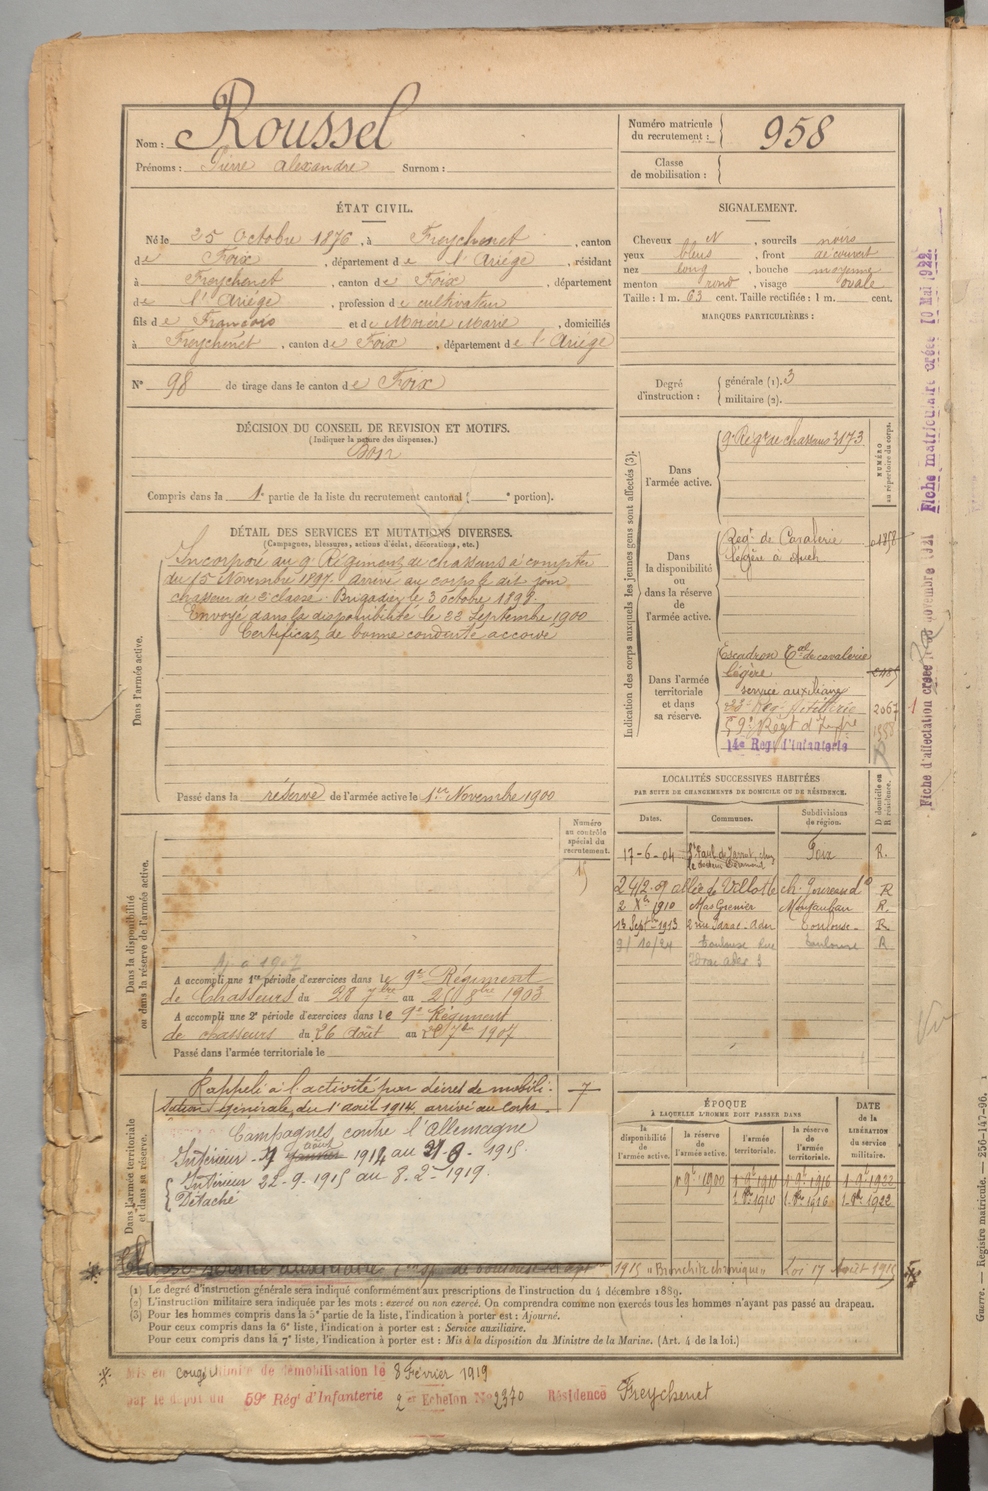 Nom : Roussel
Prénoms : Pierre Alexandre Surnom :
Numéro matricule du recrutement : 958
Classe de mobilisation :
ÉTAT CIVIL.
Né le 25 Octobre 1876, à Freychenet, canton
de Foix, département de l'Ariège, résidant
à Freychenet, canton de Foix, département
de l'Ariège, profession de cultivateur
fils de François et de Morère Marie, domiciliés
à Freychenet, canton de Foix, département de l'Ariège
N° 98 de tirage dans le canton de Foix
SIGNALEMENT.
Cheveux N, sourcils noirs
yeux bleus, front découvert
nez long, bouche moyenne
menton rond, visage ovale
Taille : 1 m. 63 cent. Taille rectifiée : 1 m. cent.
MARQUES PARTICULIÈRES :
Degré d'instruction : générale (1). 3
militaire (2).
DÉCISION DU CONSEIL DE REVISION ET MOTIFS.
(Indiquer la nature des dispenses.)
Bon
Compris dans la 1e partie de la liste du recrutement cantonal ( e portion).
DÉTAIL DES SERVICES ET MUTATIONS DIVERSES.
(Campagnes, blessures, actions d'éclat, décorations, etc.)
Dans l'armée active.
Incorporé au 9e Régiment de chasseurs à compter
du 15 Novembre 1897. Arrivé au corps le dit jour
chasseur de 2e classe. Brigadier le 3 octobre 1899.
Envoyé dans la disponibilité le 22 Septembre 1900
Certificat de bonne conduite accordé
Passé dans la réserve de l'armée active le 1er Novembre 1900
Indication des corps auxquels les jeunes gens sont affectés (3).
NUMÉRO au répertoire du corps.
Dans l'armée active.
9e Régt de chasseurs 3173
Dans la disponibilité ou dans la réserve de l'armée active.
Régt de Cavalerie
légère à Auch
Dans l'armée territoriale et dans sa réserve.
Escadron Tal de cavalerie
légère
service auxiliaire
Artillerie 2067
59e Régt d'Infrie
14e Reg. d'Infanterie
LOCALITÉS SUCCESSIVES HABITÉES
PAR SUITE DE CHANGEMENTS DE DOMICILE OU DE RÉSIDENCE.
Dates. Communes. Subdivisions de région. D domicile ou R résidence.
17-6-04 St Paul de Jarrat, chez Foix R.
allée de Villotte R
2 Xbre 1910 Mas Grenier Montauban R.
13 Septbre 1913 Toulouse R
Toulouse Rue Toulouse R
Dans la disponibilité ou dans la réserve de l'armée active.
Numéro au contrôle spécial du recrutement.
A accompli une 1re période d'exercices dans le 9e Régiment
de Chasseurs du 28 7bre au 25 8bre 1903
A accompli une 2e période d'exercices dans le 9e Régiment
de chasseurs du 26 Août au 7bre 1907
Passé dans l'armée territoriale le
Dans l'armée territoriale et dans sa réserve.
Rappelé à l'activité par décret de mobili-
sation générale du 1er août 1914, arrivé au corps
Campagnes contre l'Allemagne
Intérieur août 1914 au 1915
Intérieur 22-9-1915 au 8-2-1919.
Détaché
Classé service auxiliaire 1915 "Bronchite chronique" Loi 17 Août 1915
ÉPOQUE
À LAQUELLE L'HOMME DOIT PASSER DANS
DATE de la LIBÉRATION du service militaire.
la disponibilité de l'armée active. la réserve de l'armée active. l'armée territoriale. la réserve de l'armée territoriale.
1 9bre 1900 1 9bre 1910 1 9bre 1916 1 9bre 1922
1. 8bre 1910 1. 8bre 1916 1. 8bre 1922
(1) Le degré d'instruction générale sera indiqué conformément aux prescriptions de l'instruction du 4 décembre 1889.
(2) L'instruction militaire sera indiquée par les mots : exercé ou non exercé. On comprendra comme non exercés tous les hommes n'ayant pas passé au drapeau.
(3) Pour les hommes compris dans la 5e partie de la liste, l'indication à porter est : Ajourné.
Pour ceux compris dans la 6e liste, l'indication à porter est : Service auxiliaire.
Pour ceux compris dans la 7e liste, l'indication à porter est : Mis à la disposition du Ministre de la Marine. (Art. 4 de la loi.)
Mis en congé illimité de démobilisation le 8 Février 1919
par le dépôt du 59e Rég' d'Infanterie 2e Echelon No 2370 Résidence Freychenet
Fiche matriculaire créée 10 Mai 1922
Fiche d'affectation créée novembre 1921
Guerre. — Registre matricule. — 256-147-96.